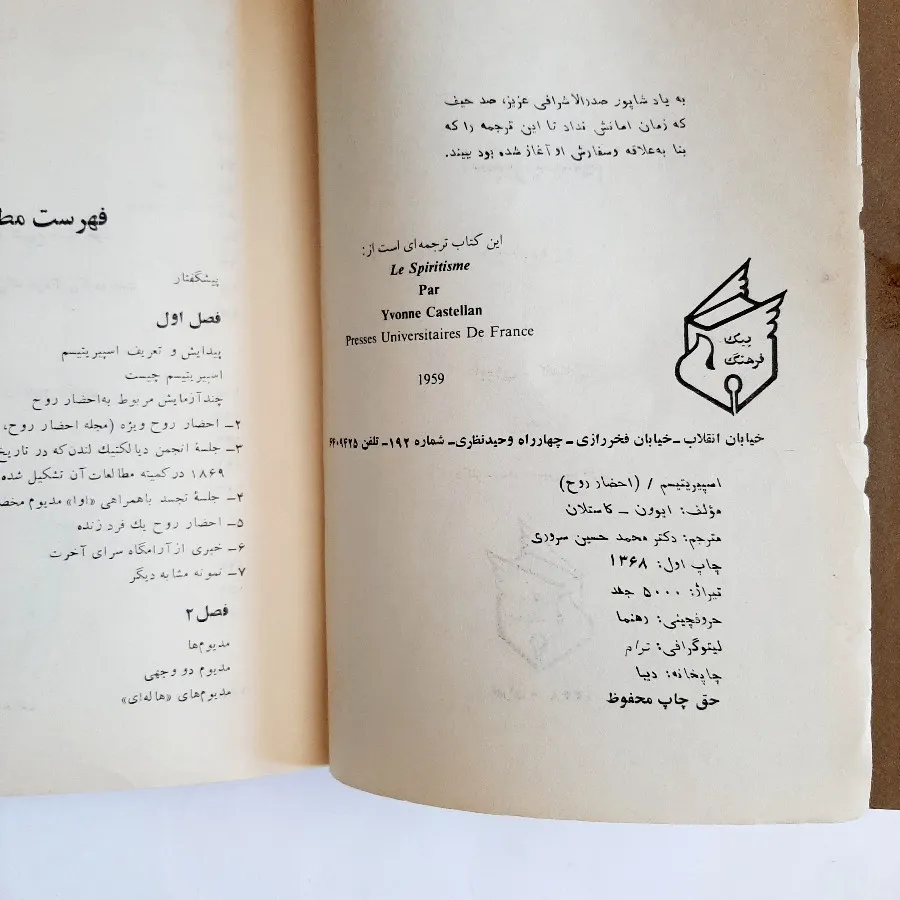 به یاد شاپور صدرالاشرافی عزیز، صد حیف
که زمان امانش نداد تا این ترجمه را که
بنا به‌علاقه وسفارش او آغاز شده بود ببیند.
این کتاب ترجمه‌ای است از:
Le Spiritisme
Par
Yvonne Castellan
Presses Universitaires De France
1959
پیک
فرهنگ
خیابان انقلاب ـ خیابان فخررازی ـ چهارراه وحیدنظری ـ شماره ۱۹۲ـ تلفن ۶۴۰۹۴۲۵
اسپیریتیسم / (احضار روح)
مؤلف: ایوون ـ کاستلان
مترجم: دکتر محمد حسین سروری
چاپ اول: ۱۳۶۸
تیراژ: ۵۰۰۰ جلد
حروفچینی: رهنما
لیتوگرافی: ترام
چاپخانه: دیبا
حق چاپ محفوظ
فهرست
پیشگفتار
فصل اول
پیدایش و تعریف اسپیریتیسم
اسپیریتیسم چیست
چندآزمایش مربوط به‌احضار روح
۲ـ احضار روح ویژه (مجله احضار روح،
۳ـ جلسهٔ انجمن دیالکتیک لندن‌که در تاریخ
۱۸۶۹ درکمیته مطالعات آن تشکیل شده
۴ـ جلسهٔ تجسد باهمراهی «اوا» مدیوم
۵ـ احضار روح یک فرد زنده
۶ـ خبری از آرامگاه سرای آخرت
۷ـ نمونه مشابه دیگر
فصل ۲
مدیوم‌ها
مدیوم دو وجهی
مدیوم‌های «هاله‌ای»